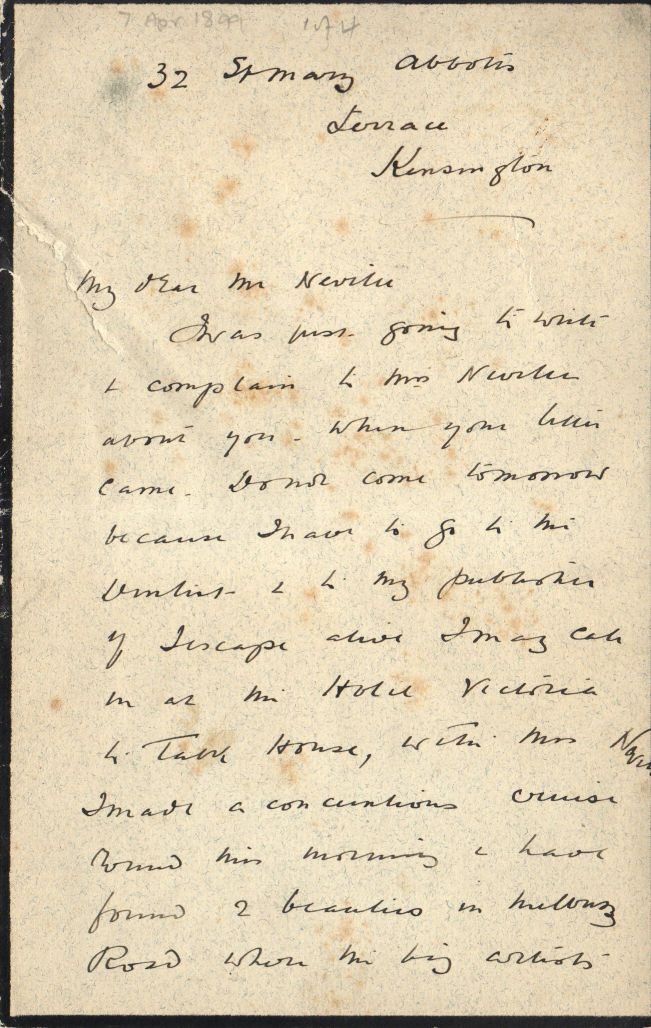 7 Apr 1899 1 of 4
32 St Mary Abbotts
Terrace
Kensington
My dear Mr Neville
I was just going to write
& complain to Mrs Neville
about you - when your letter
came. Do not come tomorrow
because I have to go to the
Dentist & to my publisher
if I escape alive I may call
in at the Hotel Victoria
to Talk House, with Mrs Neville
I made a concientious cruise
round this morning & have
found 2 beauties in Melbury
Road where the big artists